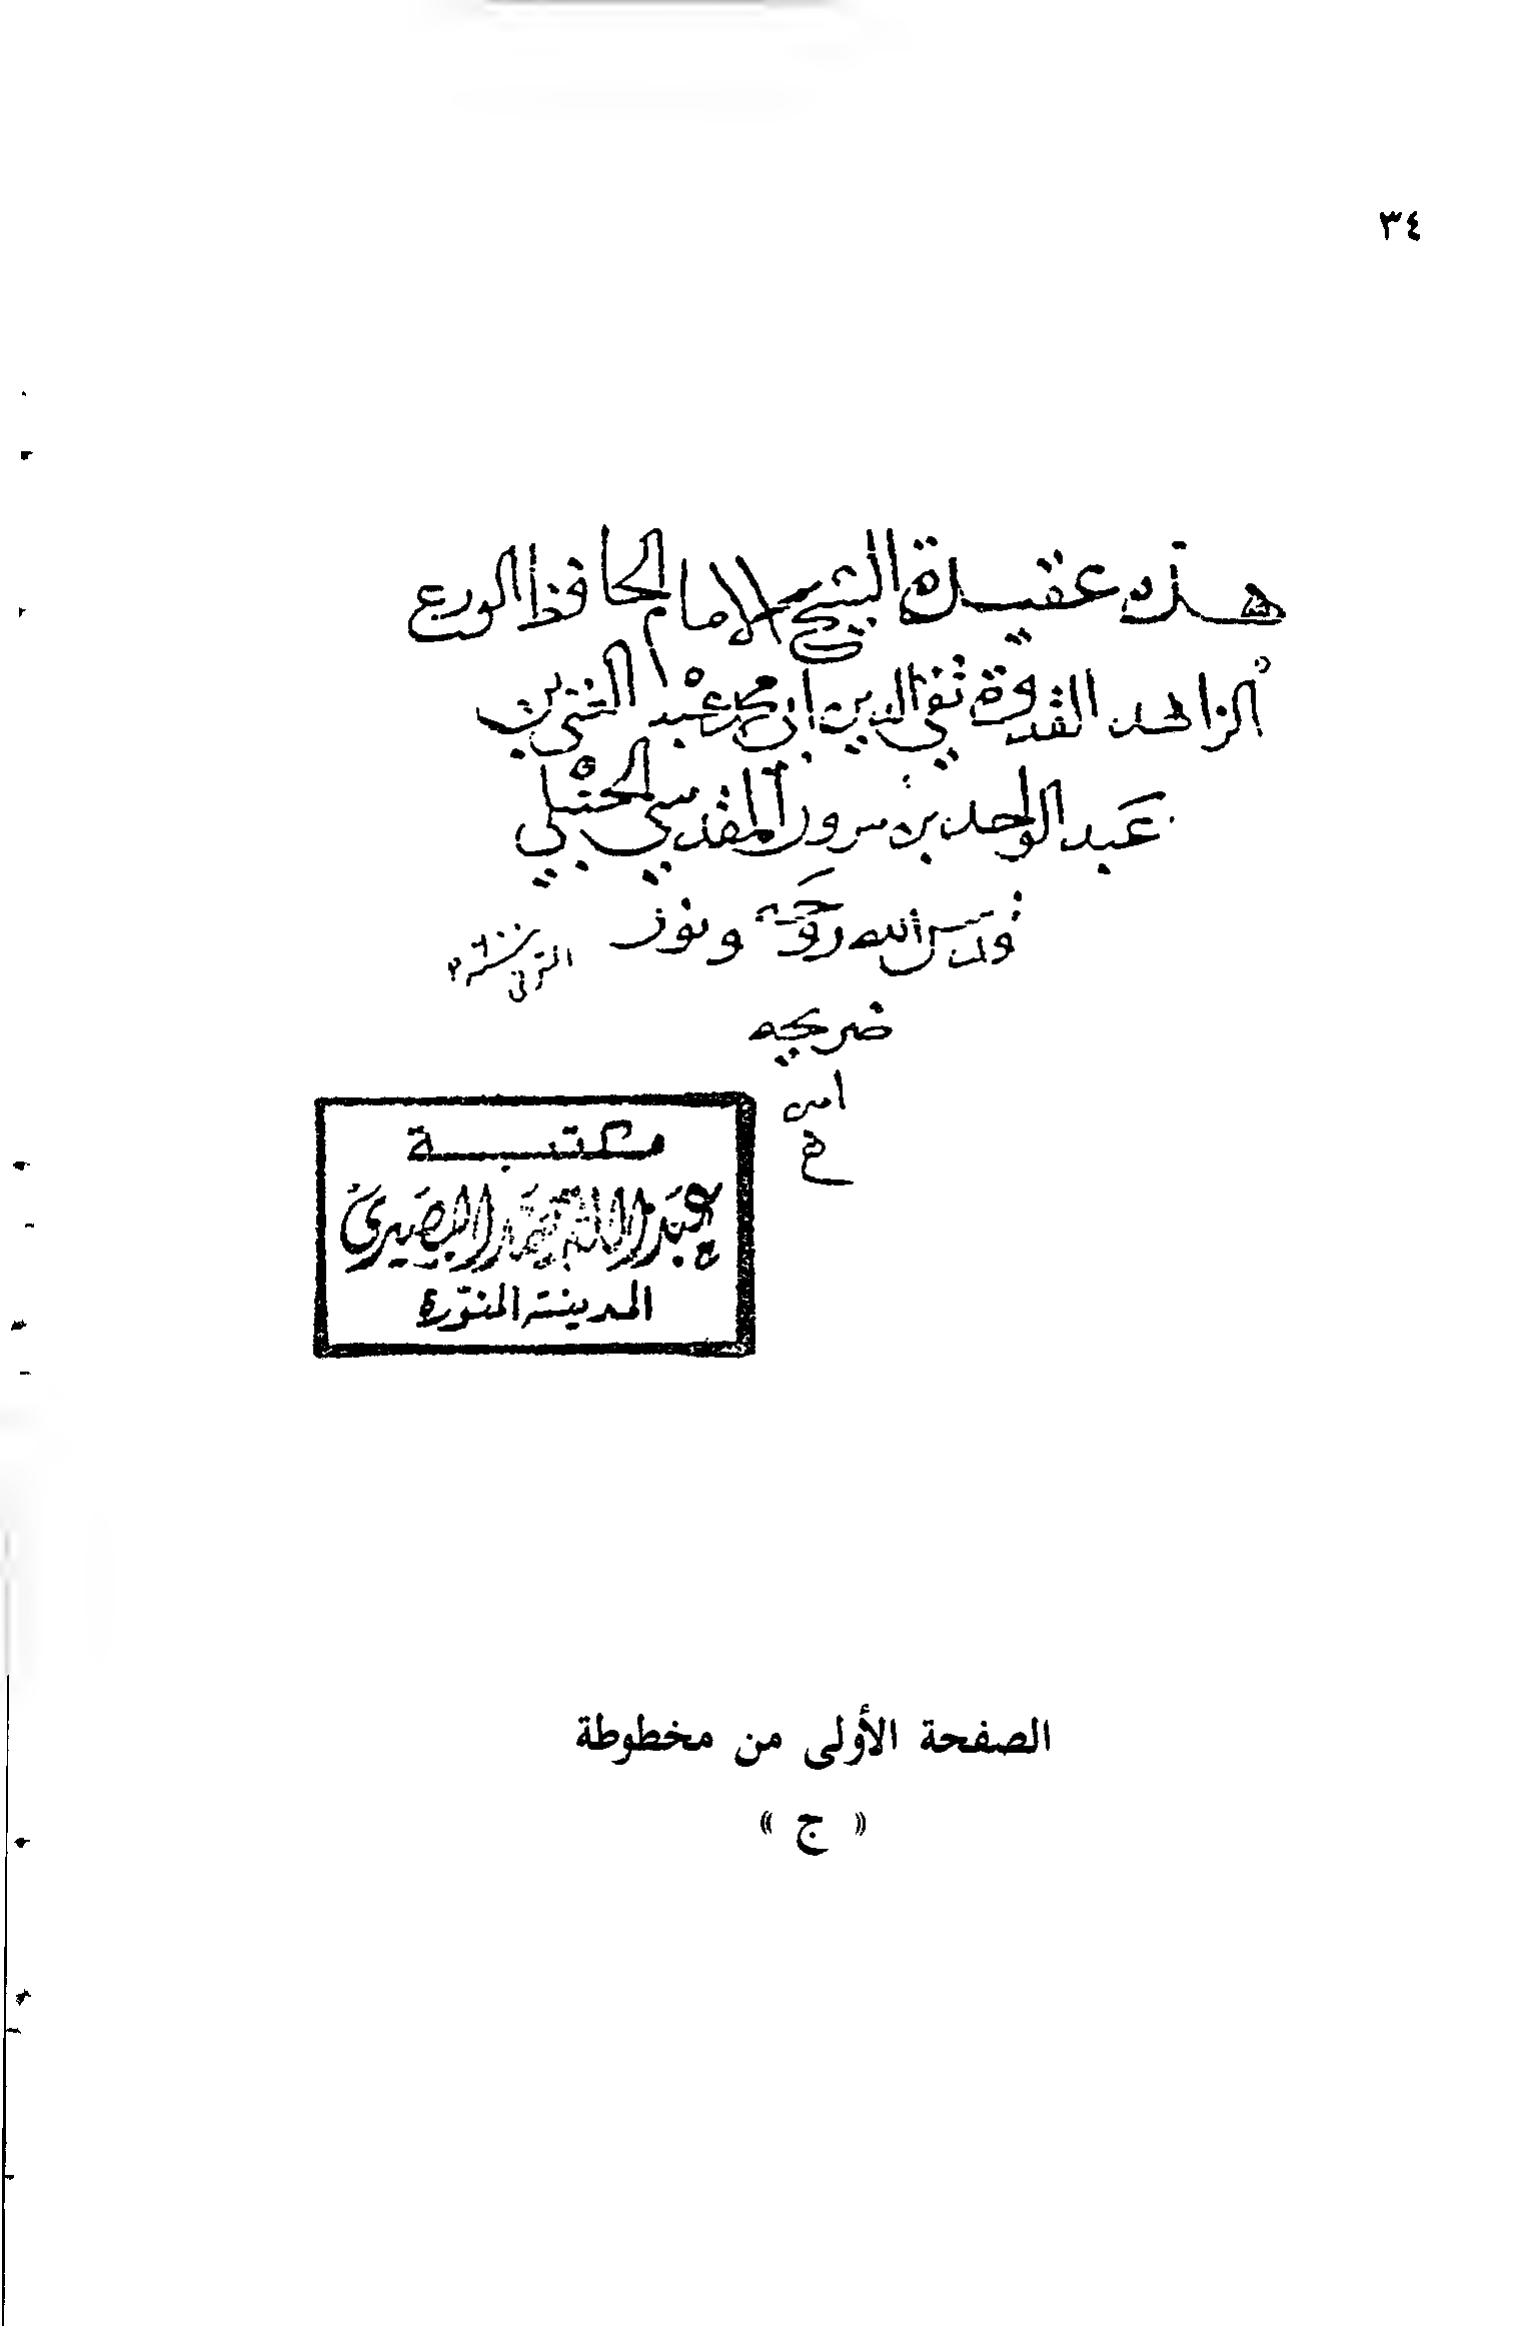 ٣٤
هذه عقيدة الشيخ الامام الحافظ الورع
الزاهد القدوة تقي الدين ابي محمد عبد الغني بن
عبد الواحد بن سرور المقدسي الحنبلي
قدس الله روحه ونور
المتوفى سنة ٦٠٠
ضريحه
امين
م
مكتبة
عبد الله محمد البصيري
المدينة المنورة
الصفحة الأولى من مخطوطة
« ج »